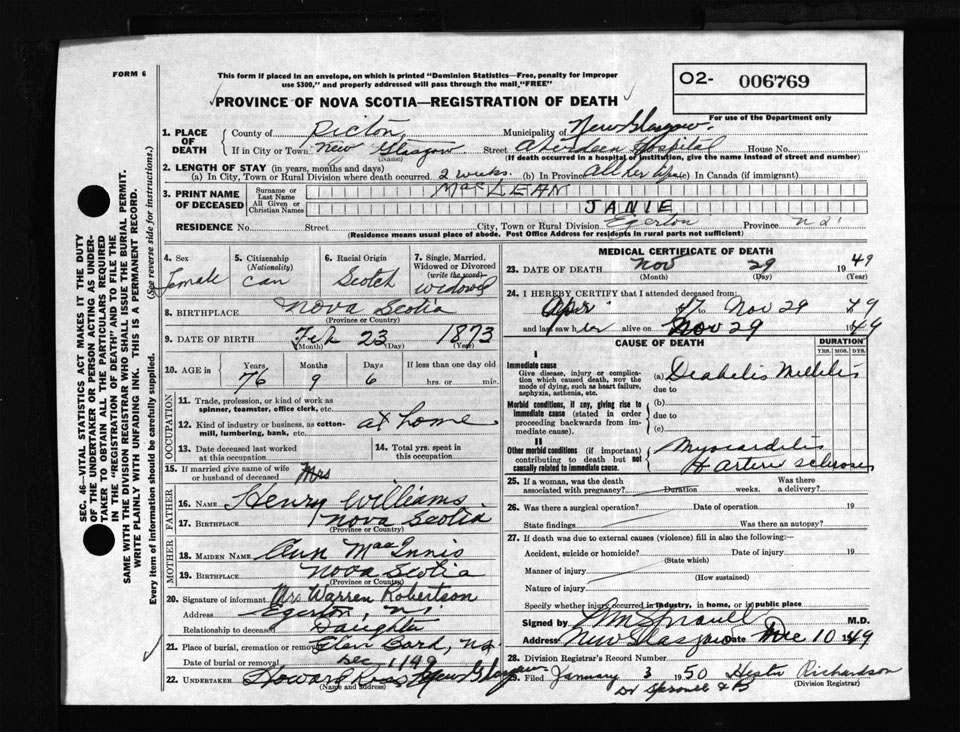 FORM 6
This form if placed in an envelope, on which is printed "Dominion Statistics—Free, penalty for improper
use $300," and properly addressed will pass through the mail, "FREE"
O2- 006769
PROVINCE OF NOVA SCOTIA—REGISTRATION OF DEATH
For use of the Department only
1. PLACE OF DEATH
County of Pictou Municipality of New Glasgow.
If in City or Town New Glasgow (Name) Street Aberdeen Hospital House No.
(If death occurred in a hospital or institution, give the name instead of street and number)
2. LENGTH OF STAY (in years, months and days)
(a) In City, Town or Rural Division where death occurred 2 weeks. (b) In Province All her life (c) In Canada (if immigrant)
3. PRINT NAME OF DECEASED
Surname or Last Name MacLEAN
All Given or Christian Names JANIE
RESIDENCE No. Street City, Town or Rural Division Egerton Province N.S.
(Residence means usual place of abode. Post Office Address for residents in rural parts not sufficient)
4. Sex Female
5. Citizenship (Nationality) Can
6. Racial Origin Scotch
7. Single, Married, Widowed or Divorced (write the word) Widowed
8. BIRTHPLACE Nova Scotia
(Province or Country)
9. DATE OF BIRTH Feb (Month) 23 (Day) 1873 (Year)
10. AGE in Years 76 Months 9 Days 6 If less than one day old hrs. or min.
OCCUPATION
11. Trade, profession, or kind of work as
spinner, teamster, office clerk, etc.
12. Kind of industry or business, as cotton-
mill, lumbering, bank, etc. at home
13. Date deceased last worked
at this occupation
14. Total yrs. spent in
this occupation
15. If married give name of wife
or husband of deceased Mrs
FATHER
16. NAME Henry Williams
17. BIRTHPLACE Nova Scotia
(Province or Country)
MOTHER
18. MAIDEN NAME Ann MacInnis
19. BIRTHPLACE Nova Scotia
(Province or Country)
20. Signature of informant Mrs Warren Robertson
Address Egerton, N.S.
Relationship to deceased Daughter
21. Place of burial, cremation or removal Glen Bard, N.S.
Date of burial or removal Dec 1 149
22. UNDERTAKER Howard Ross New Glasgow
(Name and Address)
MEDICAL CERTIFICATE OF DEATH
23. DATE OF DEATH Nov (Month) 29 (Day) 1949 (Year)
24. I HEREBY CERTIFY that I attended deceased from:
17 Nov 29 1949
and last saw her alive on Nov 29 1949
CAUSE OF DEATH
DURATION
YRS. MOS. DYS.
I
Immediate cause
Give disease, injury or complica-
tion which caused death, not the
mode of dying, such as heart failure,
asphyxia, asthenia, etc.
(a) Diabetis Mellitis
due to
Morbid conditions, if any, giving rise to
immediate cause (stated in order
proceeding backwards from im-
mediate cause).
(b)
due to
(c)
II
Other morbid conditions (if important)
contributing to death but not
causally related to immediate cause.
Myocarditis
Arterio sclerosis
25. If a woman, was the death
associated with pregnancy? Duration weeks. Was there
a delivery?
26. Was there a surgical operation? Date of operation 19
State findings Was there an autopsy?
27. If death was due to external causes (violence) fill in also the following:—
Accident, suicide or homicide? Date of injury 19
(State which)
Manner of injury
(How sustained)
Nature of injury
Specify whether injury occurred in industry, in home, or in public place
Signed by M.D.
Address New Glasgow Date Dec 10 1949
28. Division Registrar's Record Number
29. Filed January 3 1950 Hester Richardson
(Division Registrar)
SEC. 46—VITAL STATISTICS ACT MAKES IT THE DUTY
OF THE UNDERTAKER OR PERSON ACTING AS UNDER-
TAKER TO OBTAIN ALL THE PARTICULARS REQUIRED
IN THE "REGISTRATION OF DEATH" AND TO FILE THE
SAME WITH THE DIVISION REGISTRAR WHO SHALL ISSUE THE BURIAL PERMIT.
WRITE PLAINLY WITH UNFADING INK. THIS IS A PERMANENT RECORD.
Every item of information should be carefully supplied. (See reverse side for instructions.)